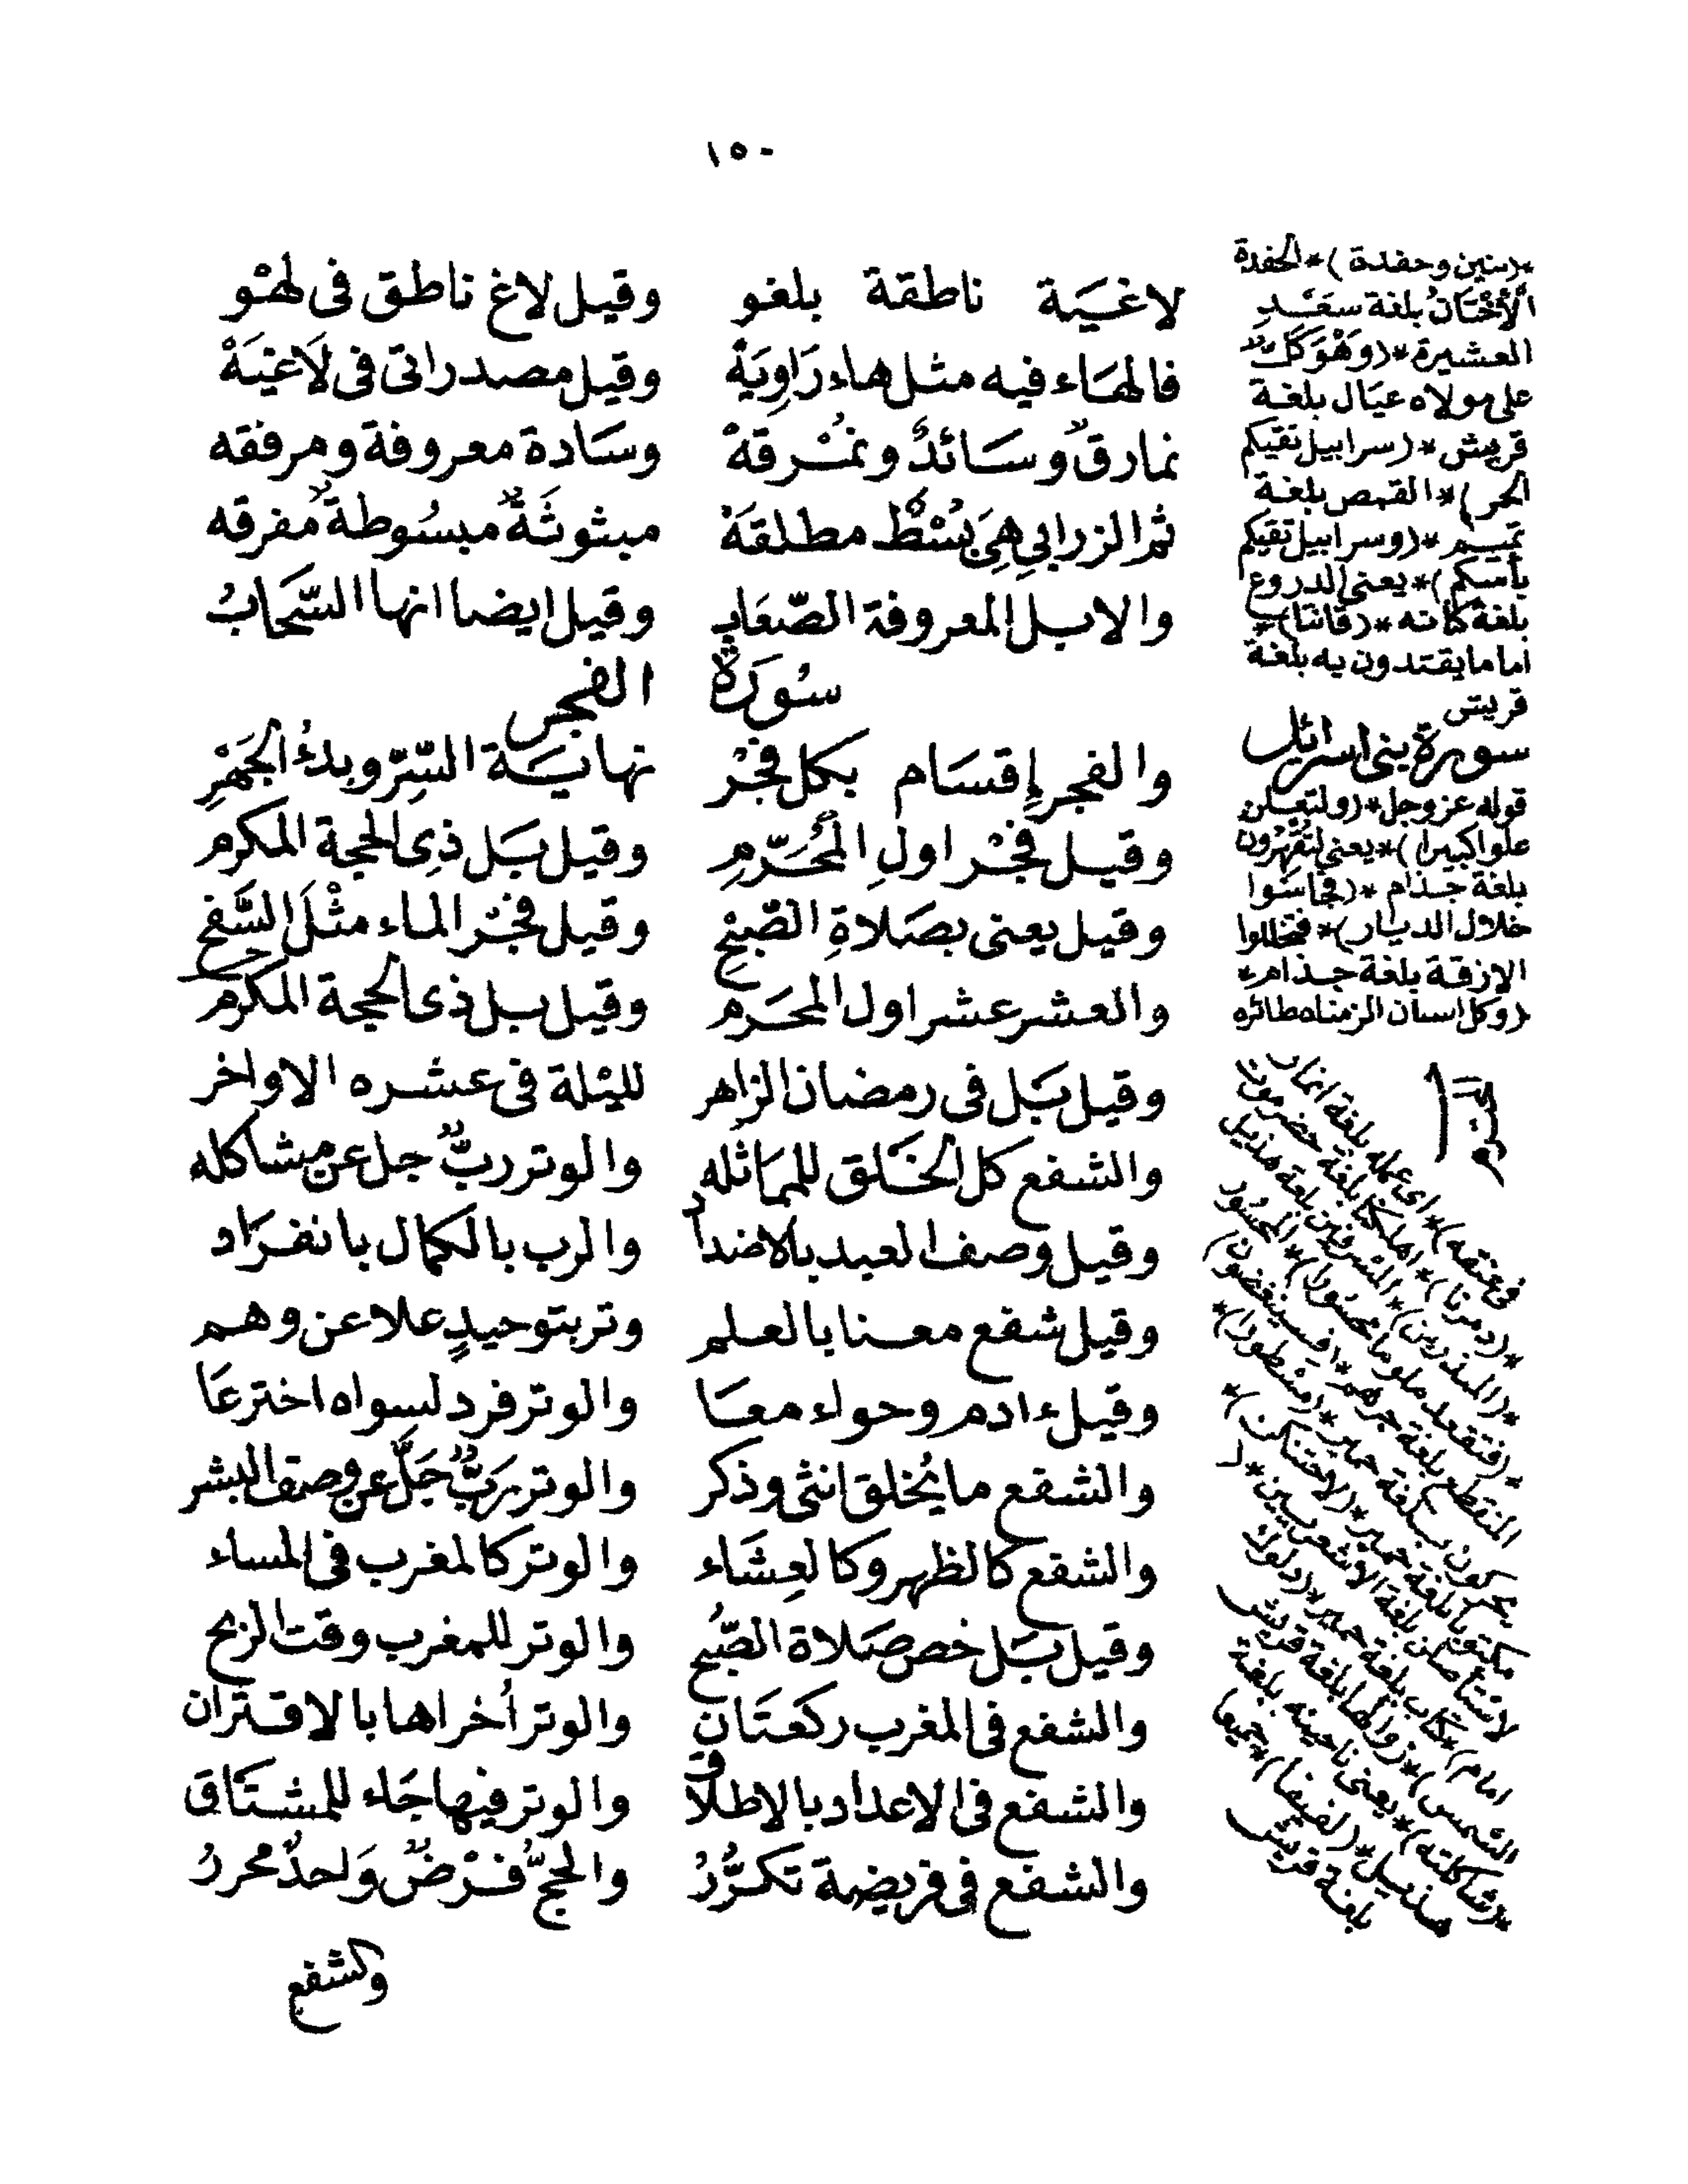 ١٥٠
لاغيَة ناطقة بلغو وقيل لاغ ناطق فى لهْو
فالهَاء فيه مثل هاء رَاوِيَةْ وقيل مصدر اتى فى لَاغيَةْ
نمارقٌ وسَائدٌ ونمُْرقةْ وسَادة معروفة ومرفقه
ثم الزرابىِ هِىَ بُسْطٌ مطلقةَ مبثوثَةٌ مبسُوطةٌ مفرقه
والابل المعروفة الصّعَابِ وقيل ايضا انها السَّحَابُ
سُورَةُ الفجر
والفجر إِقسَام بكل فجْر نهايَة السِّرّ وبدءُ الجَهْرِ
وقيل فجْر اولِ المُحَرّمِ وقيل بَل ذِى الحجة المكرم
وقيل يعنى بصَلاةِ الصّبْحِ وقيل فجْر الماء مثْلَ السَّفح
والعشر عشر اول المحَرم وقيل بل ذى الحجة المكرم
وقيل بَل فى رمضان الزاهر لليْلة فى عشره الاواخر
والشفع كل الخَلق للممَاثله والوتر ربٌّ جل عن مشاكله
وقيل وصف العبد بالاضداد والرب بالكمال بانفرَاد
وقيل شفع معنا بالعلم وتر بتوحيدٍ علا عن وهم
وقيل ءادم وحواء معَا والوتر فرد لسواه اخترعَا
والشفع ما يُخلق انثى وذكر والوتر رَبٌّ جَلَّ عن وصف البشر
والشفع كالظهر وكالعِشَاء والوتر كالمغرب فى المساء
وقيل بَل خص صَلاة الصّبُح والوتر للمغرب وقت الربح
والشفع فى المغرب ركعَتَان والوتر أخراها بالاقتران
والشفع فى الاعداد بالاطلاق والوتر فيها جَاء للمشتَاق
والشفع فى فريضة تكرُّرُ والحجُّ فرْضٌ وَاحدٌ محررُ
وكشفع
*(بنين وحفدة)* الحفدة
الأخْتَانُ بلغة سعَْدِ
العشيرة*(وَهْوَ كَلٌّ
على مولاه عيَال بلغة
قريش*(سرابيل تقيكم
الحر)* القمص بلغة
تميم*(وسرابيل تقيكم
بأسكم)* يعنى الدروع
بلغة كنانه*(قانتا)*
اماما يقتدون به بلغة
قريش
سورة بنى اسرائل
قوله عز وجل*(ولتعلن
علوا كبيرا)* يعنى لتقهرون
بلغة جذام*(فجاسَوا
خلال الديار)* فتخللوا
الازقة بلغة جذام*
(وكل انسان الزمناه طائره
فى عنقه)* اى عمله بلغة انمار
*(دمرنا)* اهلكنا بلغة حضرموت
*(المبذرين)* المسرفين بلغة هذيل
*(فتقعد ملوما محسورا)* المحسور
المنقطع بلغة جرهم*(فسينغضون)
يحركون بلغة حمير*(مسْطورا)*
مكتوبا بلغة حمير*(لاحتنكن)*
لاستأصلن بلغة الاشعريين*(
امام)* كتاب بلغة حمير*(دلوك
الشمس)* زوالها بلغة قريش
*(شاكلته)* يعنى ناحيته بلغة
هذيل*(لفيفا)* جميعا
بلغة قريش